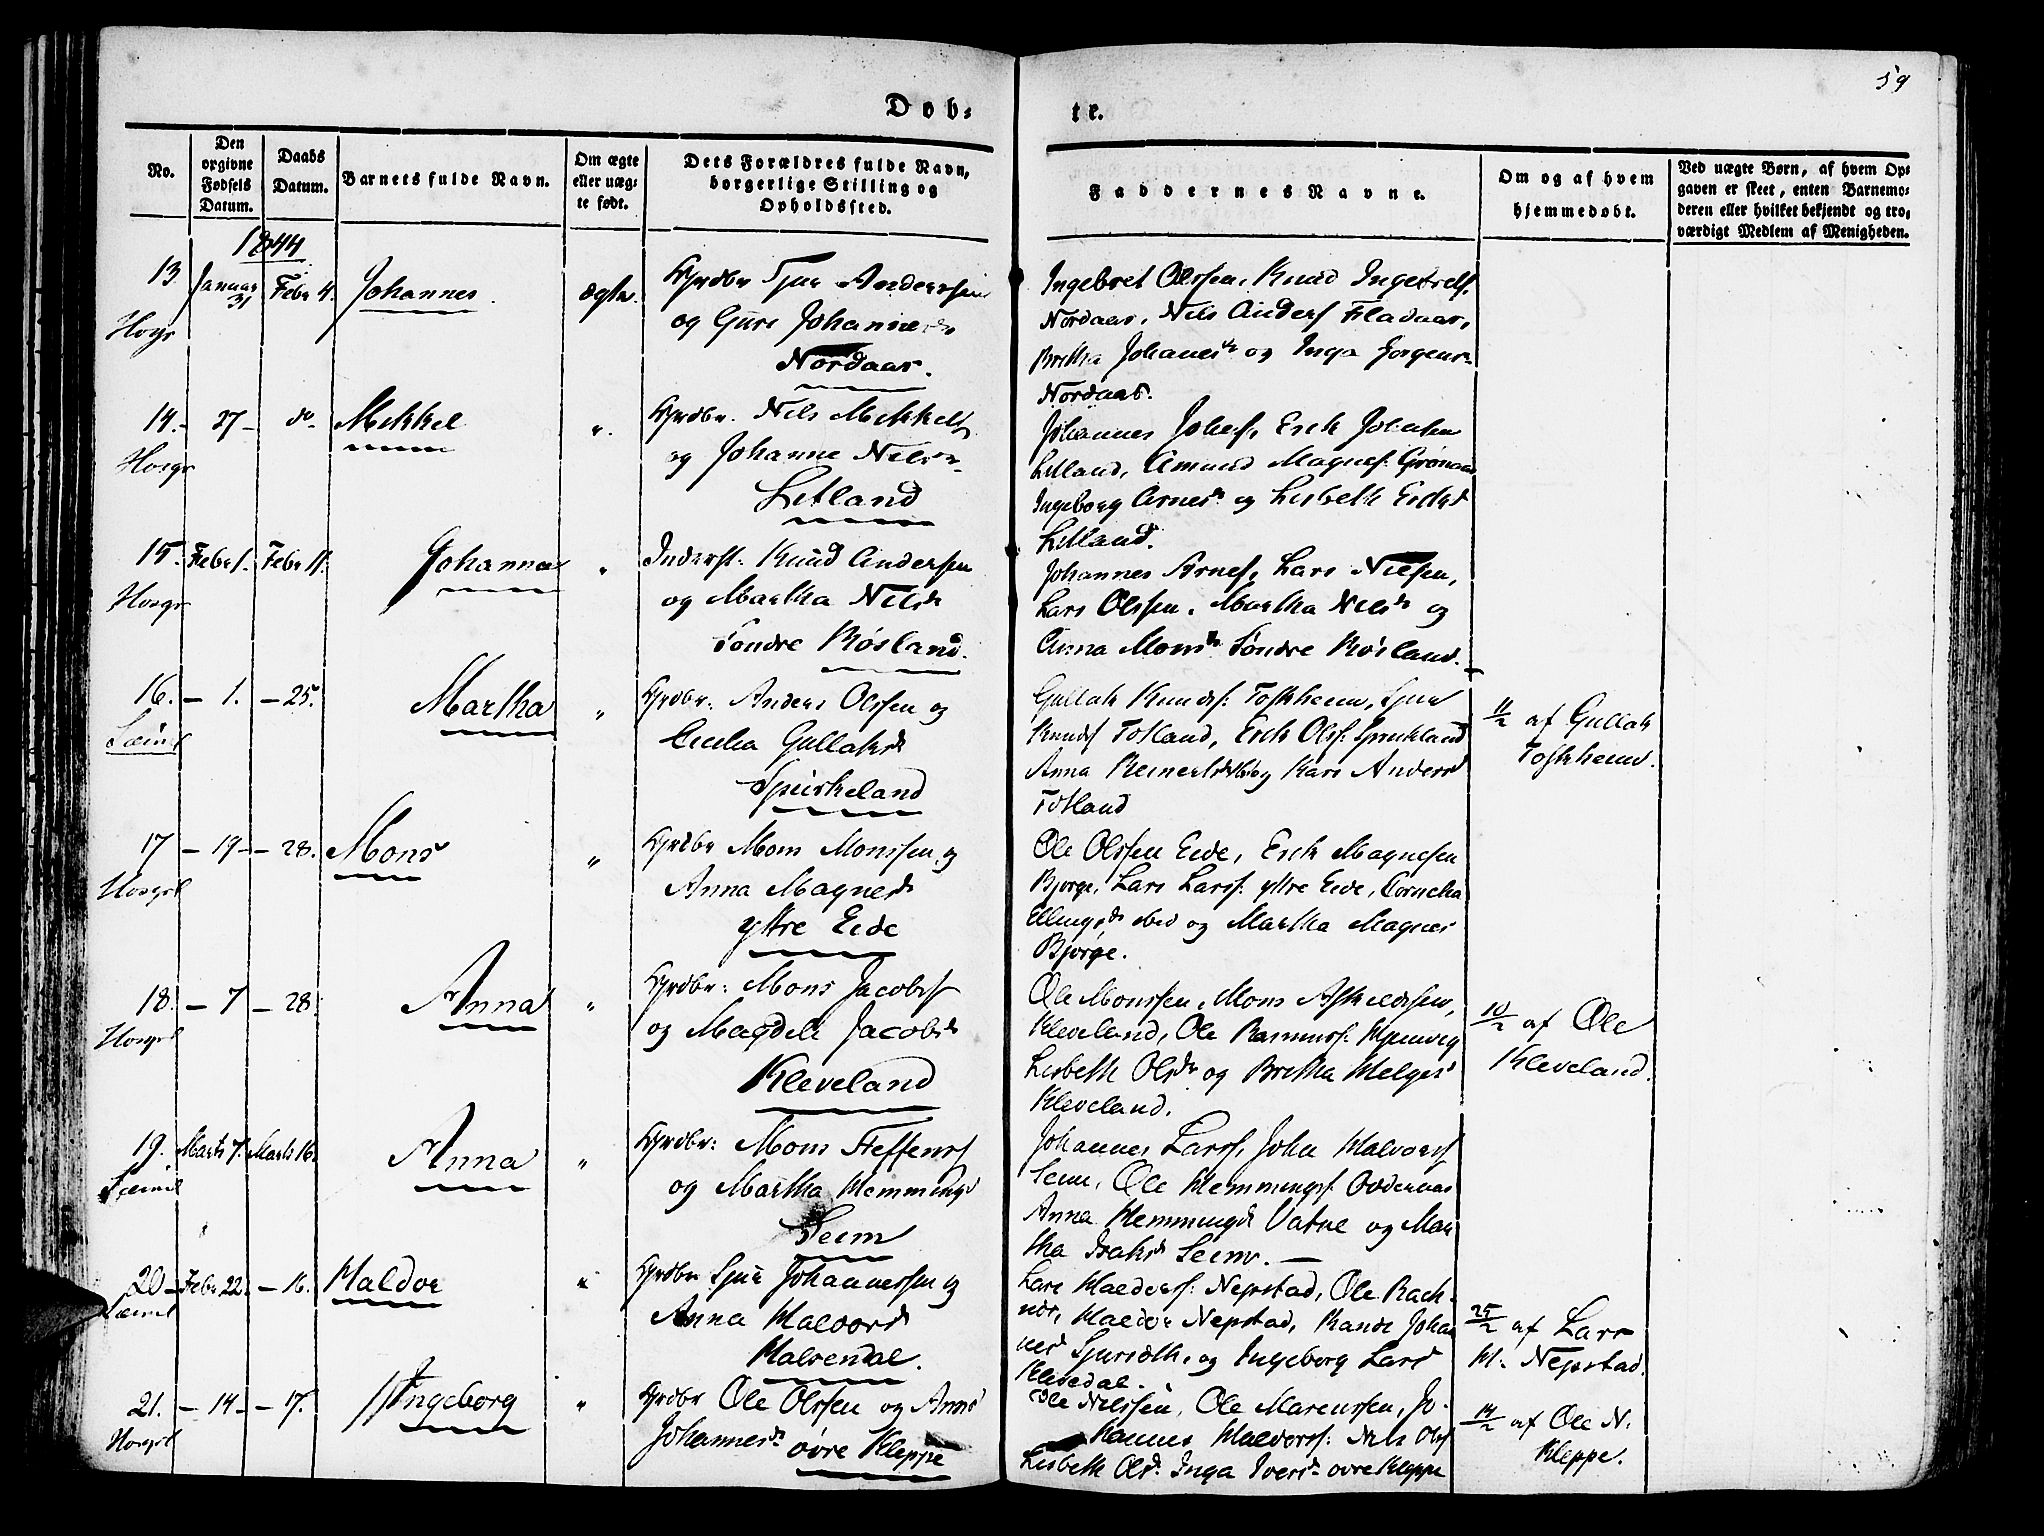 59
Døb-
te.
No.
Den
orgivne
Fødsels
Datum.
Daabs
Datum.
Barnets fulde Navn.
Om ægte
eller uæg-
te født.
Dets Forældres fulde Navn,
borgerlige Stilling og
Opholdssted.
Faddernes Navne.
Om og af hvem
hjemmedøbt.
Ved uægte Børn, af hvem Op-
gaven er skeet, enten Barnemo-
deren eller hvilket bekjendt og tro-
værdigt Medlem af Menigheden.
1844
13
Januar 31
Febr 4.
Johannes.
ægte.
Grdbr Sjur Anderssen
og Guri Johannesd
Nordaas.
Ingebret Olssen, Knud Ingebretss.
Nordaas, Nils Anderss Fladaas,
Bretha Johanesdr og Inga
Nordaas.
14.
27
do
Mikkel
Grdbr. Nils Mikkels
og Johanne Nilsd
Letland
Johannes
Letland, Amund Magness.
Ingeborg Arnesdr og Lisbeth
Letland.
15.
Febr 1.
Febr 11.
Johanna
Inderst: Knud Andersen
og Martha Nilsdr
Søndre Røsland.
Johannes Arness, Lars Nilsen,
Lars Olssen, Martha Nilsdr og
Anna Monsdr Søndre Røsland.
16.
- 1.
- 25.
Martha
Grdbr: Anders Olssen og
Cicilia Gullaksd
Spurkeland
Gullak Knudss: Toskheim, Sjur
Knudss Totland, Erik Olss: Spurkland
Anna og Kari Andersd
Totland
11/2 af Gullak
Toskheim.
17
- 19
- 28.
Mons
Grdbr Mons Monssen og
Anna Magnesd
yttre Eide
Ole Olssen Eide, Erik Magnesen
Bjørge, Lars Larss: yttre Eide, Cornelia
Ellingsdr ibid og Martha Magnesd
Bjørge.
18.
- 7
- 28.
Anna
Grdbr: Mons Jacobss
og Magdeli Jacobsd
Kleveland
Ole Monssen, Mons Askildssen,
Kleveland, Ole Rasmuss:
Lisbeth Olsdr og Bretha Helgesd
Kleveland.
10/2 af Ole
Kleveland.
19.
Marts 7.
Marts 16.
Anna
Grdbr: Mons Steffenss
og Martha Hemmingsd
Seim
Johannes Larss, John Halvorss
Seim, Ole Hemmingss:
Anna Hemmingsd Vatne og Mar
tha Isaksdr Seim.
20
Febr 22.
- 16.
Haldor
Grdbr Sjur Johannessen og
Anna Halvorsd
Halsendal.
Lars Haldorss: Nepstad, Ole
Haldor Nepstad, Johan
nesd og Ingeborg Larsd
25/2 af Lars
H. Nepstad.
21.
- 14
- 17.
Ingeborg
Grdbr Ole Olssen og Anna
Johannesdr øvre Kleppe
Ole Nilssen, Ole Marcussen, Jo-
hannes Haldorss: Nils Olss
Lisbeth Olsdr Inga Iversdr øvre Kleppe
14/2 af Ole N.
Kleppe.